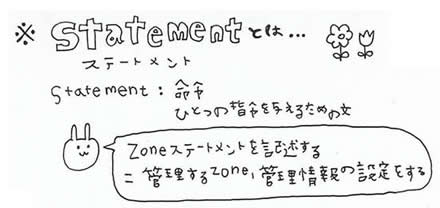 ※ Statementとは...
ステートメント
Statement : 命令
ひとつの指令を与えるための文
Zoneステートメントを記述する
= 管理するZone,管理情報の設定をする